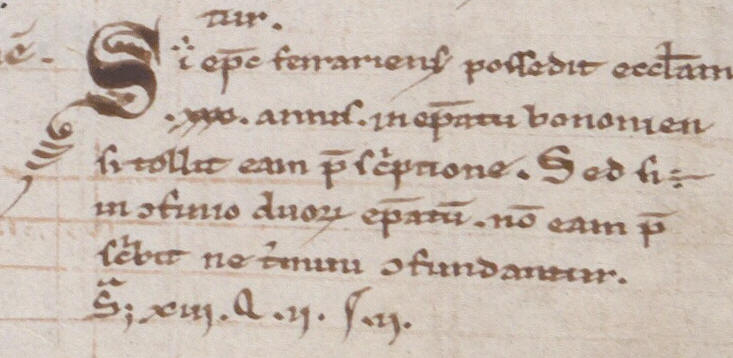 tur.
Si ep̄c ferrariensꝭ possedit eccl̄am
.xxx. annis. in ep̄atu bononien
si tollit eam p̄ sc̍ptione. Sed si
in ɔfinio duoꝝ ep̄atū. nō eam p̄
sc̍bit ne t̍mini ɔfundantur.
S; xiii. Q .ii. .ii.